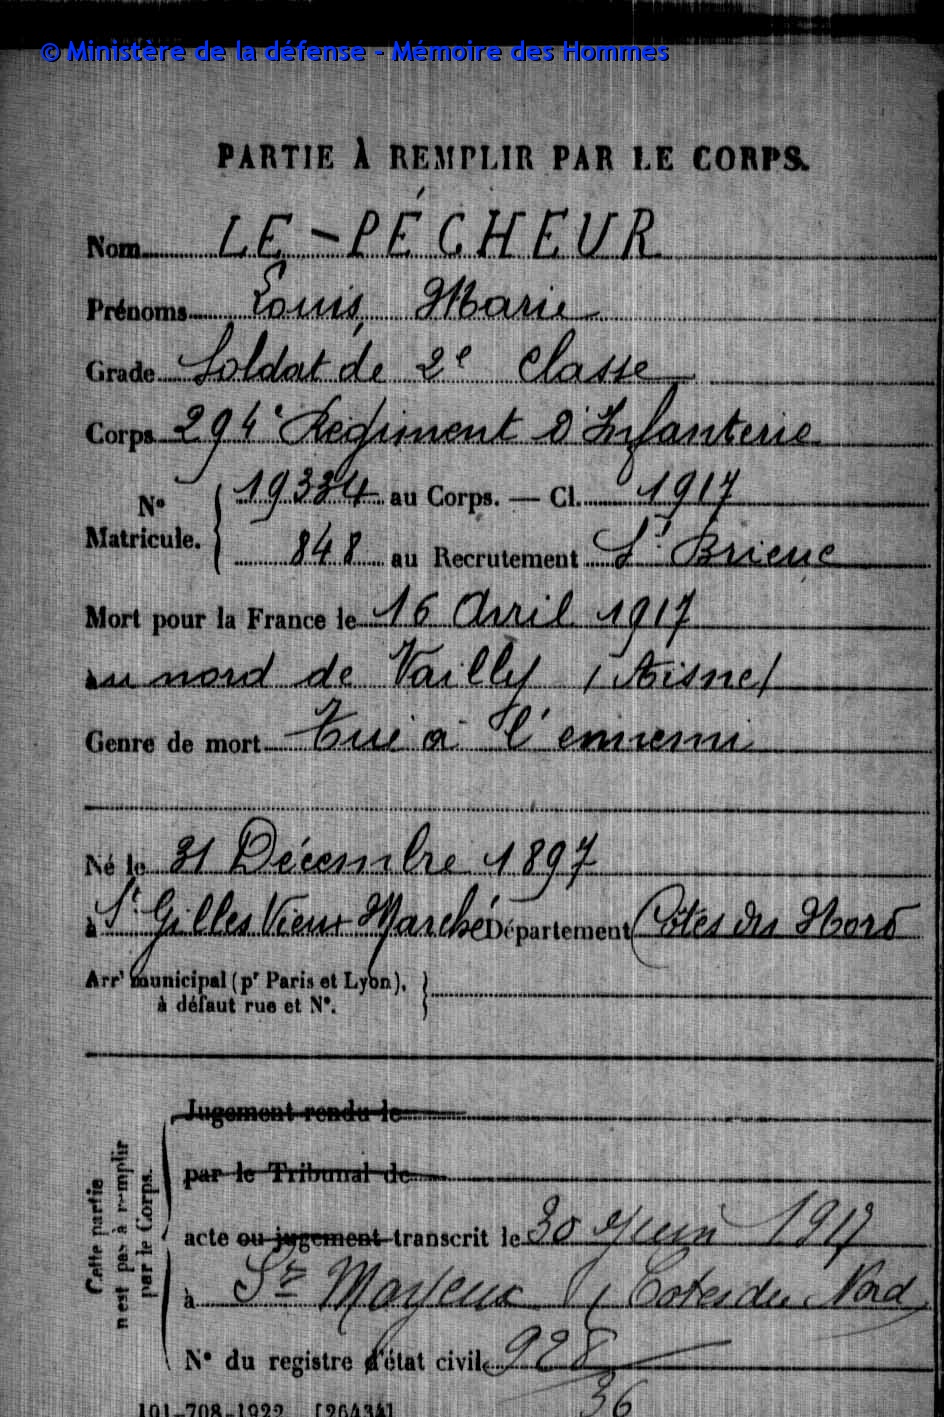 © Ministère de la défense - Mémoire des Hommes
PARTIE À REMPLIR PAR LE CORPS.
Nom LE-PÉCHEUR
Prénoms Louis, Marie
Grade Soldat de 2e Classe
Corps 294e Régiment d'Infanterie
No Matricule. { 19334 au Corps. — Cl. 1917
848 au Recrutement St Brieuc
Mort pour la France le 16 Avril 1917
au nord de Vailly (Aisne)
Genre de mort Tué à l'ennemi
Né le 31 Décembre 1897
à St Gilles Vieux Marché Département Côtes du Nord
Arrt municipal (pr Paris et Lyon), }
à défaut rue et No.
Cette partie
n'est pas à remplir
par le Corps.
Jugement rendu le
par le Tribunal de
acte ou jugement transcrit le 30 Juin 1917
à St Mayeux (Cotes du Nord
No du registre d'état civil 928/36
101-708-1922. [26434]